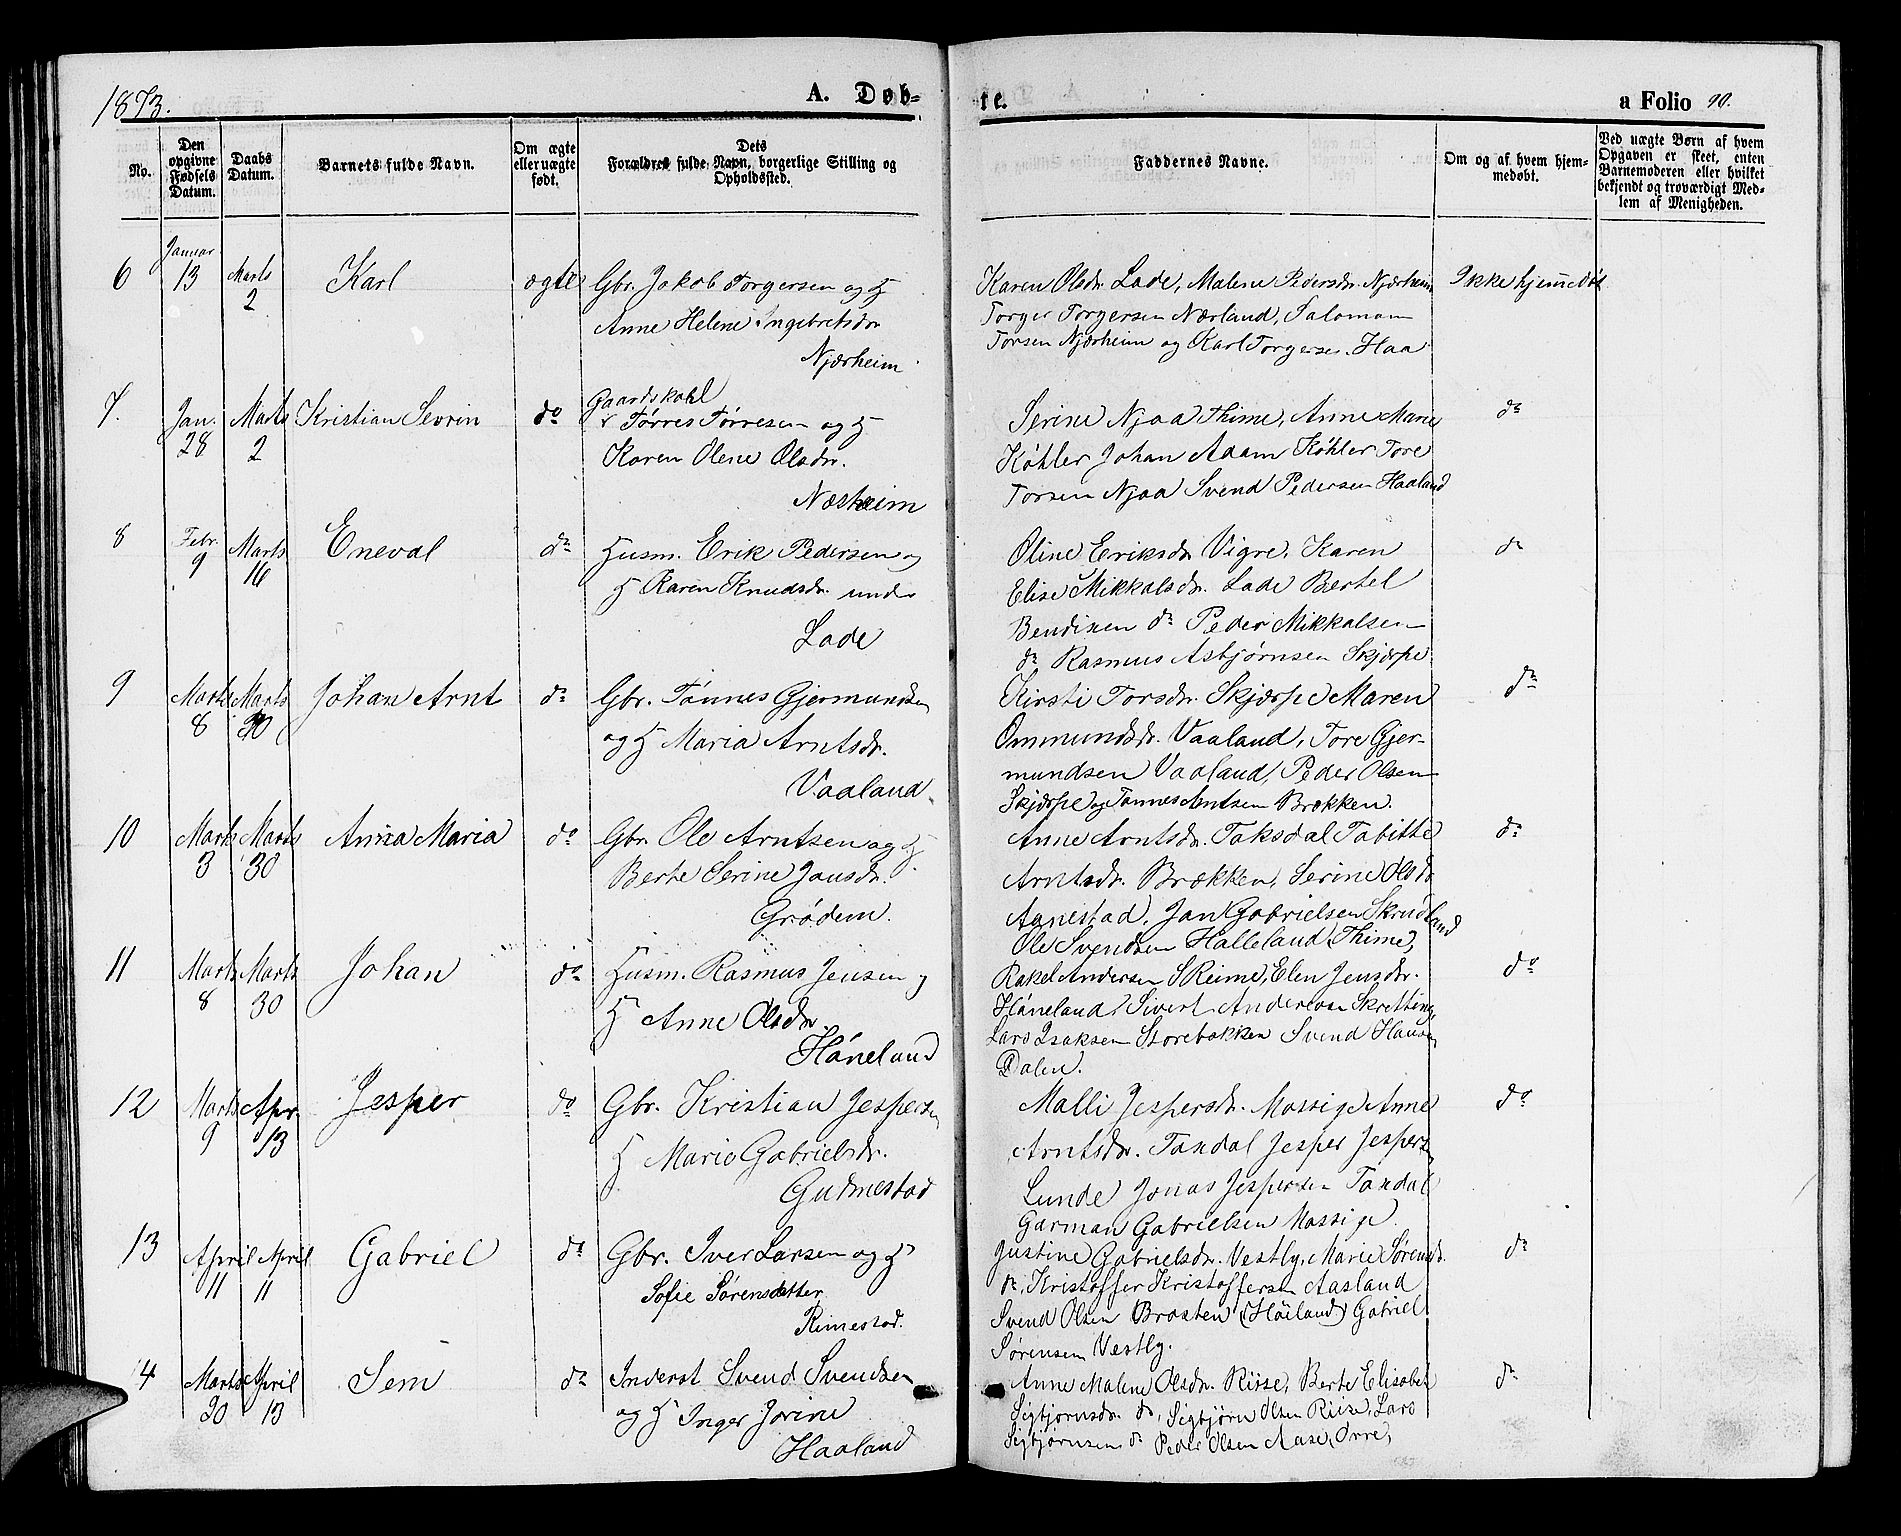 1873.
A. Døb=
te.
a Folio 90.
No.
Den opgivne Fødsels Datum.
Daabs Datum.
Barnets fulde Navn.
Om ægte eller uægte født.
Dets Forældres fulde Navn, borgerlige Stilling og Opholdssted.
Faddernes Navne.
Om og af hvem hjem-
medøbt.
Ved uægte Børn af hvem
Opgaven er skeet, enten
Barnemoderen eller hvilket
bekjendt og troværdigt Med-
lem af Menigheden.
6 Januar 13 Marts 2 Karl ægte Gbr. Jakob Torgersen og H
Anne Helene Ingebretsdr.
Njærheim
Karen Olsdr. Lade, Malene Pedersdr. Njærheim
Torger Torgersen Nærland, Salomon
Torsen Njærheim og Karl Torgersen Haa
Ikke hjemmedøbt
7. Jan. 28 Marts 2 Kristian Sevrin do Gaardskahl
Tørres Tørresen og H
Karen Olene Olsdr.
Næsheim
Serine Njaa Thime, Anne Marie
Køhler Johan Adam Køhler Tore
Torsen Njaa Svend Pedersen Haaland
do
8 Febr. 9 Marts 16 Eneval do Husm. Erik Pedersen og
H Karen Knudsdr. under
Lade
Oline Eriksdr. Vigre, Karen
Elise Mikkalsdr. Lade Bertel
Bendixen do Peder Mikkalsen
do Rasmus Asbjørnsen Skjærpe
do
9 Marts 8 Marts 30 Johan Arnt do Gbr. Tønnes Gjermundsen
og H Maria Arntsdr.
Vaaland
Kirsti Torsdr. Skjærpe Maren
Ommundsdr. Vaaland, Tore Gjer-
mundsen Vaaland, Peder Olsen
Skjærpe og Tønnes Arntsen Brækken.
do
10 Marts 3 Marts 30 Anna Maria do Gbr. Ole Arntsen og H
Berte Serine Jansdr.
Grødem.
Anne Arntsdr. Taksdal Tabitte
Arntsdr. Brækken, Serine Olsdr
Aanestad, Jan Gabrielsen Skrudland
Ole Svendsen Halleland Thime,
do
11 Marts 8 Marts 30 Johan do Husm. Rasmus Jensen og
H Anne Olsdr.
Håneland
Rakel Andersen SReime, Elen Jensdr.
Håneland, Sivert Andersen Skretting,
Lars Isaksen Storebækken Svend Hansen
Dalen.
do
12 Marts 9 Apr. 13 Jesper do Gbr. Kristian Jespersen
H Marie Gabrielsdr.
Gudmestad
Malli Jespersdr. Mossige Anne
Arntsdr. Tandal Jesper Jespersen
Lunde Jonas Jespersen Tandal
Garman Gabrielsen Mossige
do
13 April 11 April 11 Gabriel do Gbr. Iver Larsen og H
Sofie Sørensdatter
Rimestad.
Justine Gabrielsdr. Vestly, Marie Sørensdr.
do, Kristoffer Kristoffersen Aasland
Svend Olsen Brosten (Høiland) Gabriel
Sørensen Vestly.
do
14 Marts 30 April 13 Sem do Inderst Svend Svendsen
og H Inger Jorine
Haaland
Anne Malene Olsdr. Riise, Berte Elisabet
Sigbjørnsdr. do, Sigbjørn Olsen Riise, Lars
Sigbjørnsen do Peder Olsen Aase, Orre,
do